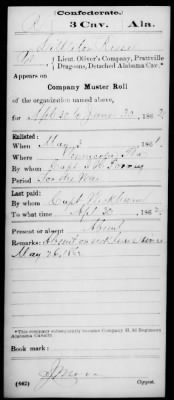 (Confederate.)
3 Cav. Ala.
Lieut. Oliver's Company, Prattville
Dragoons, Detached Alabama Cav.*
Appears on
Company Muster Roll
of the organization named above,
for Apl 30 to June 30, 1862.
Enlisted:
When May 3, 1861.
Where
By whom Capt
Period for the War
Last paid:
By whom Capt
To what time Apl 30, 1862.
Present or absent Absent
Remarks: Absent on sick leave since
May 26, 186
*This company subsequently became Company H, 3d Regiment
Alabama Cavalry.
Book mark:
(642)
Copyist.